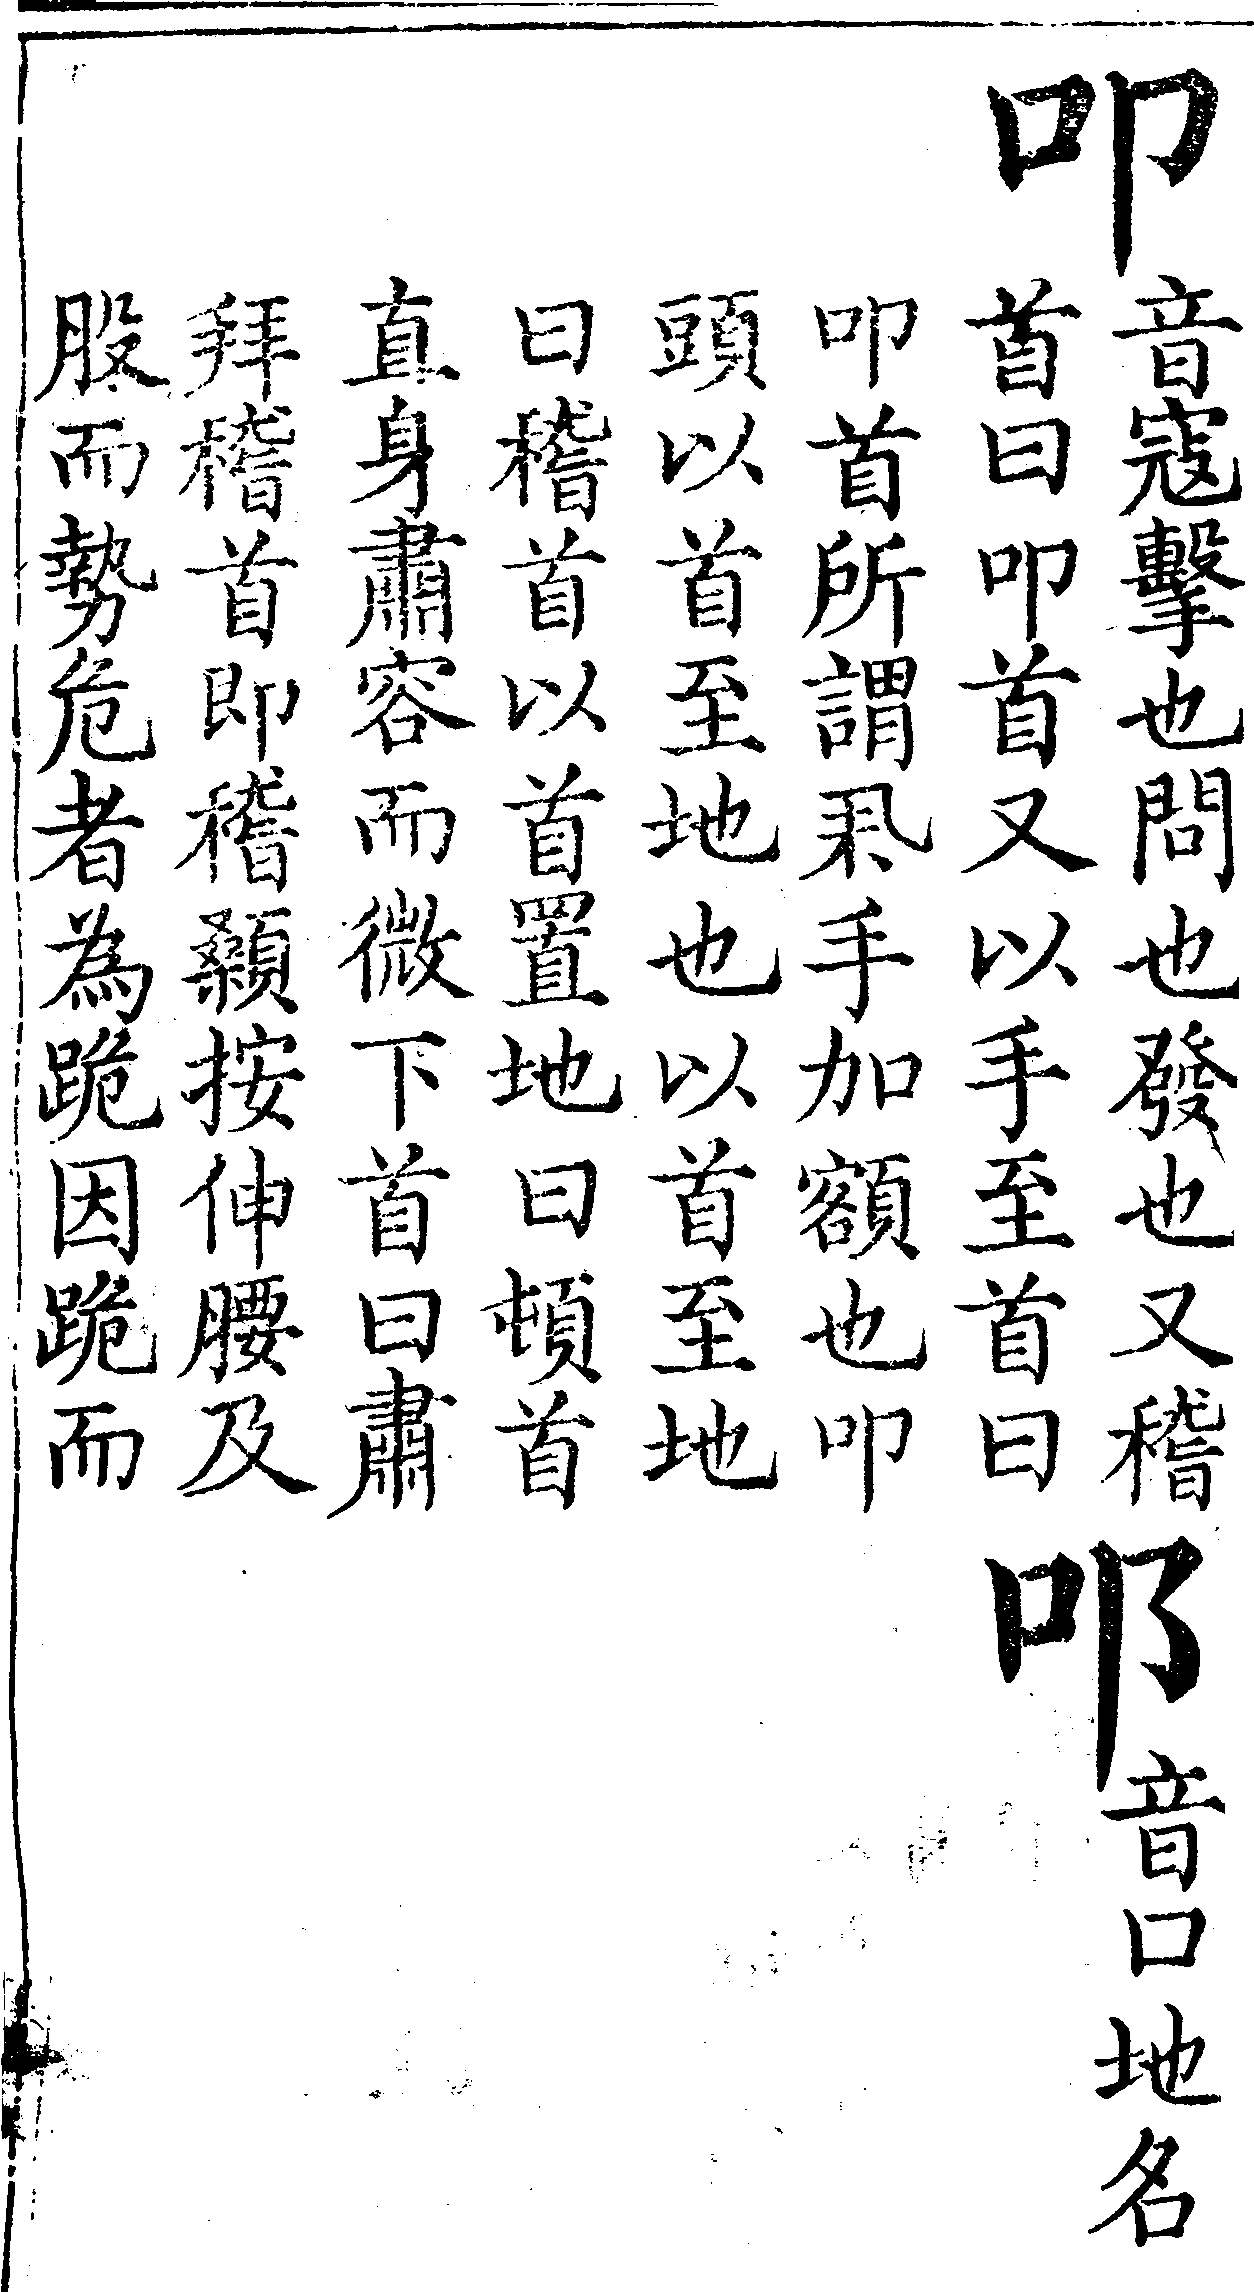 叩
音寇擊也問也發也又稽
首曰叩首又以手至首曰
叩首所謂手加額也叩
頭以首至地也以首至地
曰稽首以首置地曰頓首
直身肅容而微下首曰肅
拜稽首即稽顙按伸腰及
股而勢危者為跪因跪而
音口地名